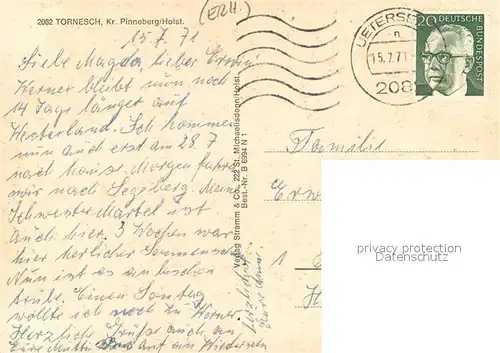 2082 TORNESCH, Kr. Pinneberg/Holst.
(ETZH.)
15.7.71
Liebe Magda lieber Erwin
Werner bleibt nun noch
14 Tage länger auf
Westerland. Ich komme
nun auch erst am 28.7
nach Hause. Morgen fahren
wir nach Segeberg. Meine
Schwester Martel ist
auch hier. 3 Wochen war
hier herlicher Sonnensch
Nun ist es ein bischen
trübe. Einen Sonntag
wollte ich noch zu Werner
Herzliche Grüße auch an
Eure Mutti Auf ein Wiedersehn
Verlag Stramm & Co., 222 St. Michaelisdonn/Holst.
Best.-Nr. B 6994 N 1
herzlichst
UETERSE
n
15.7.71
208
20 DEUTSCHE
BUNDESPOST
Familie
Erw
1
H
privacy protection
Datenschutz